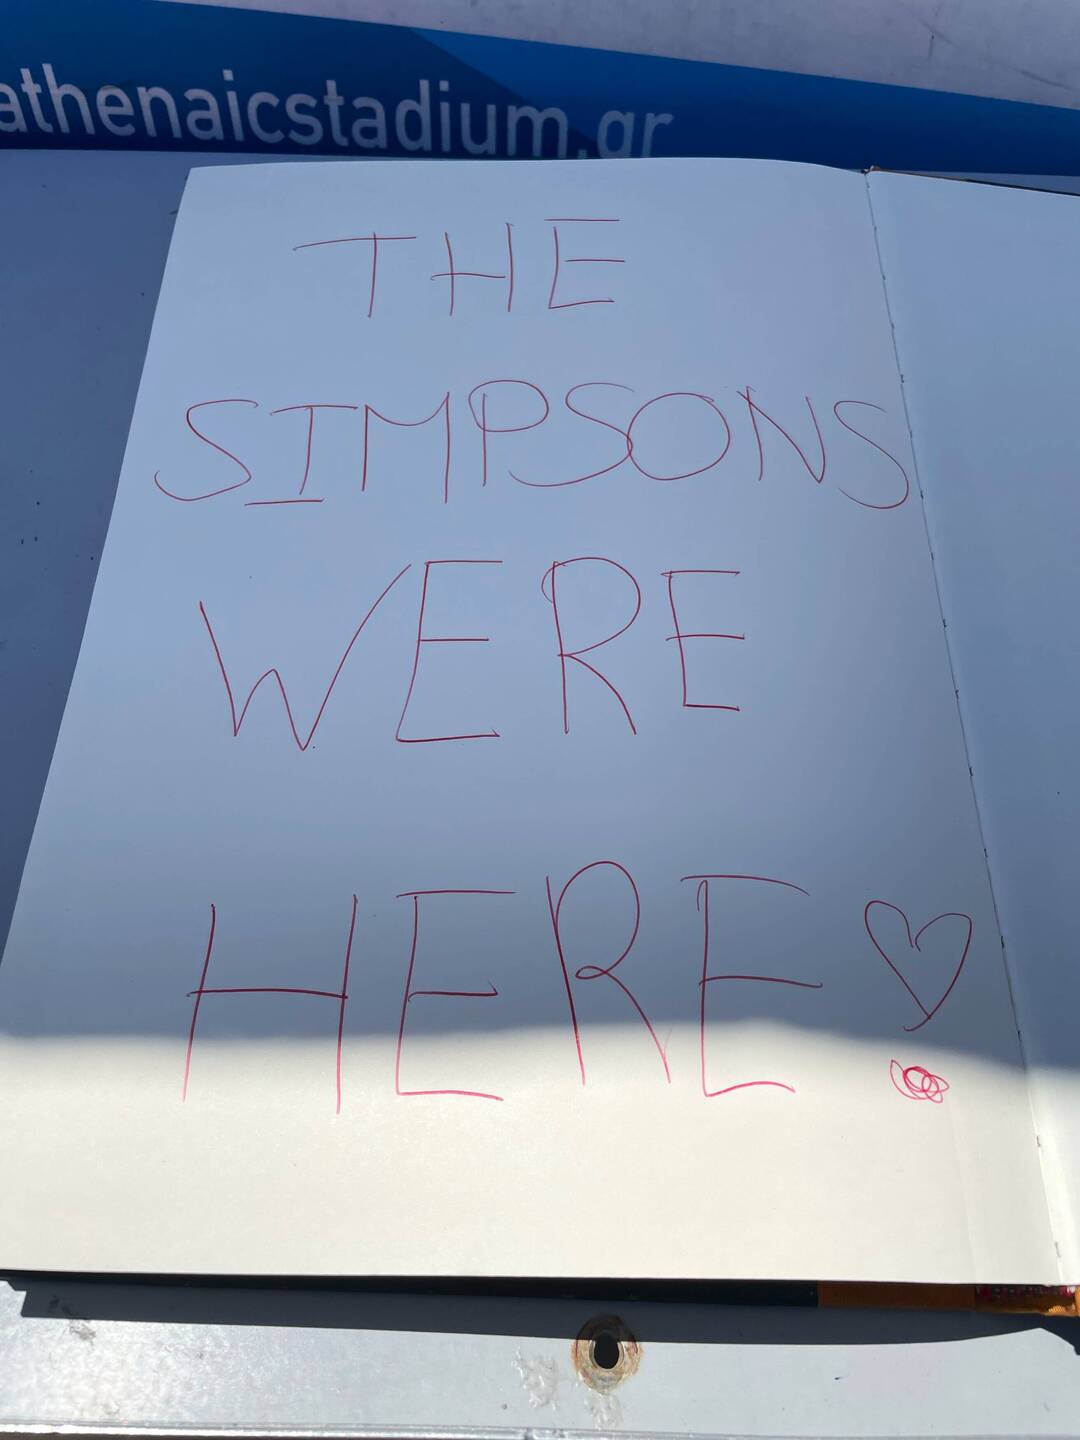 athenaicstadium.gr
THE
SIMPSONS
WERE
HERE